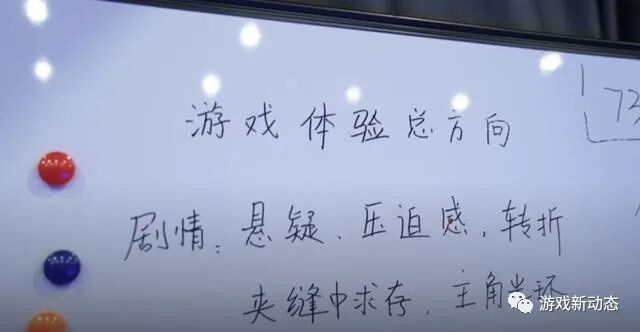 游戏体验总方向
剧情：悬疑、压迫感，转折
夹缝中求存，主角光环
游戏新动态